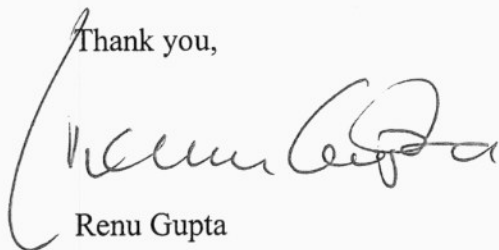 Thank you,
Renu Gupta
Renu Gupta